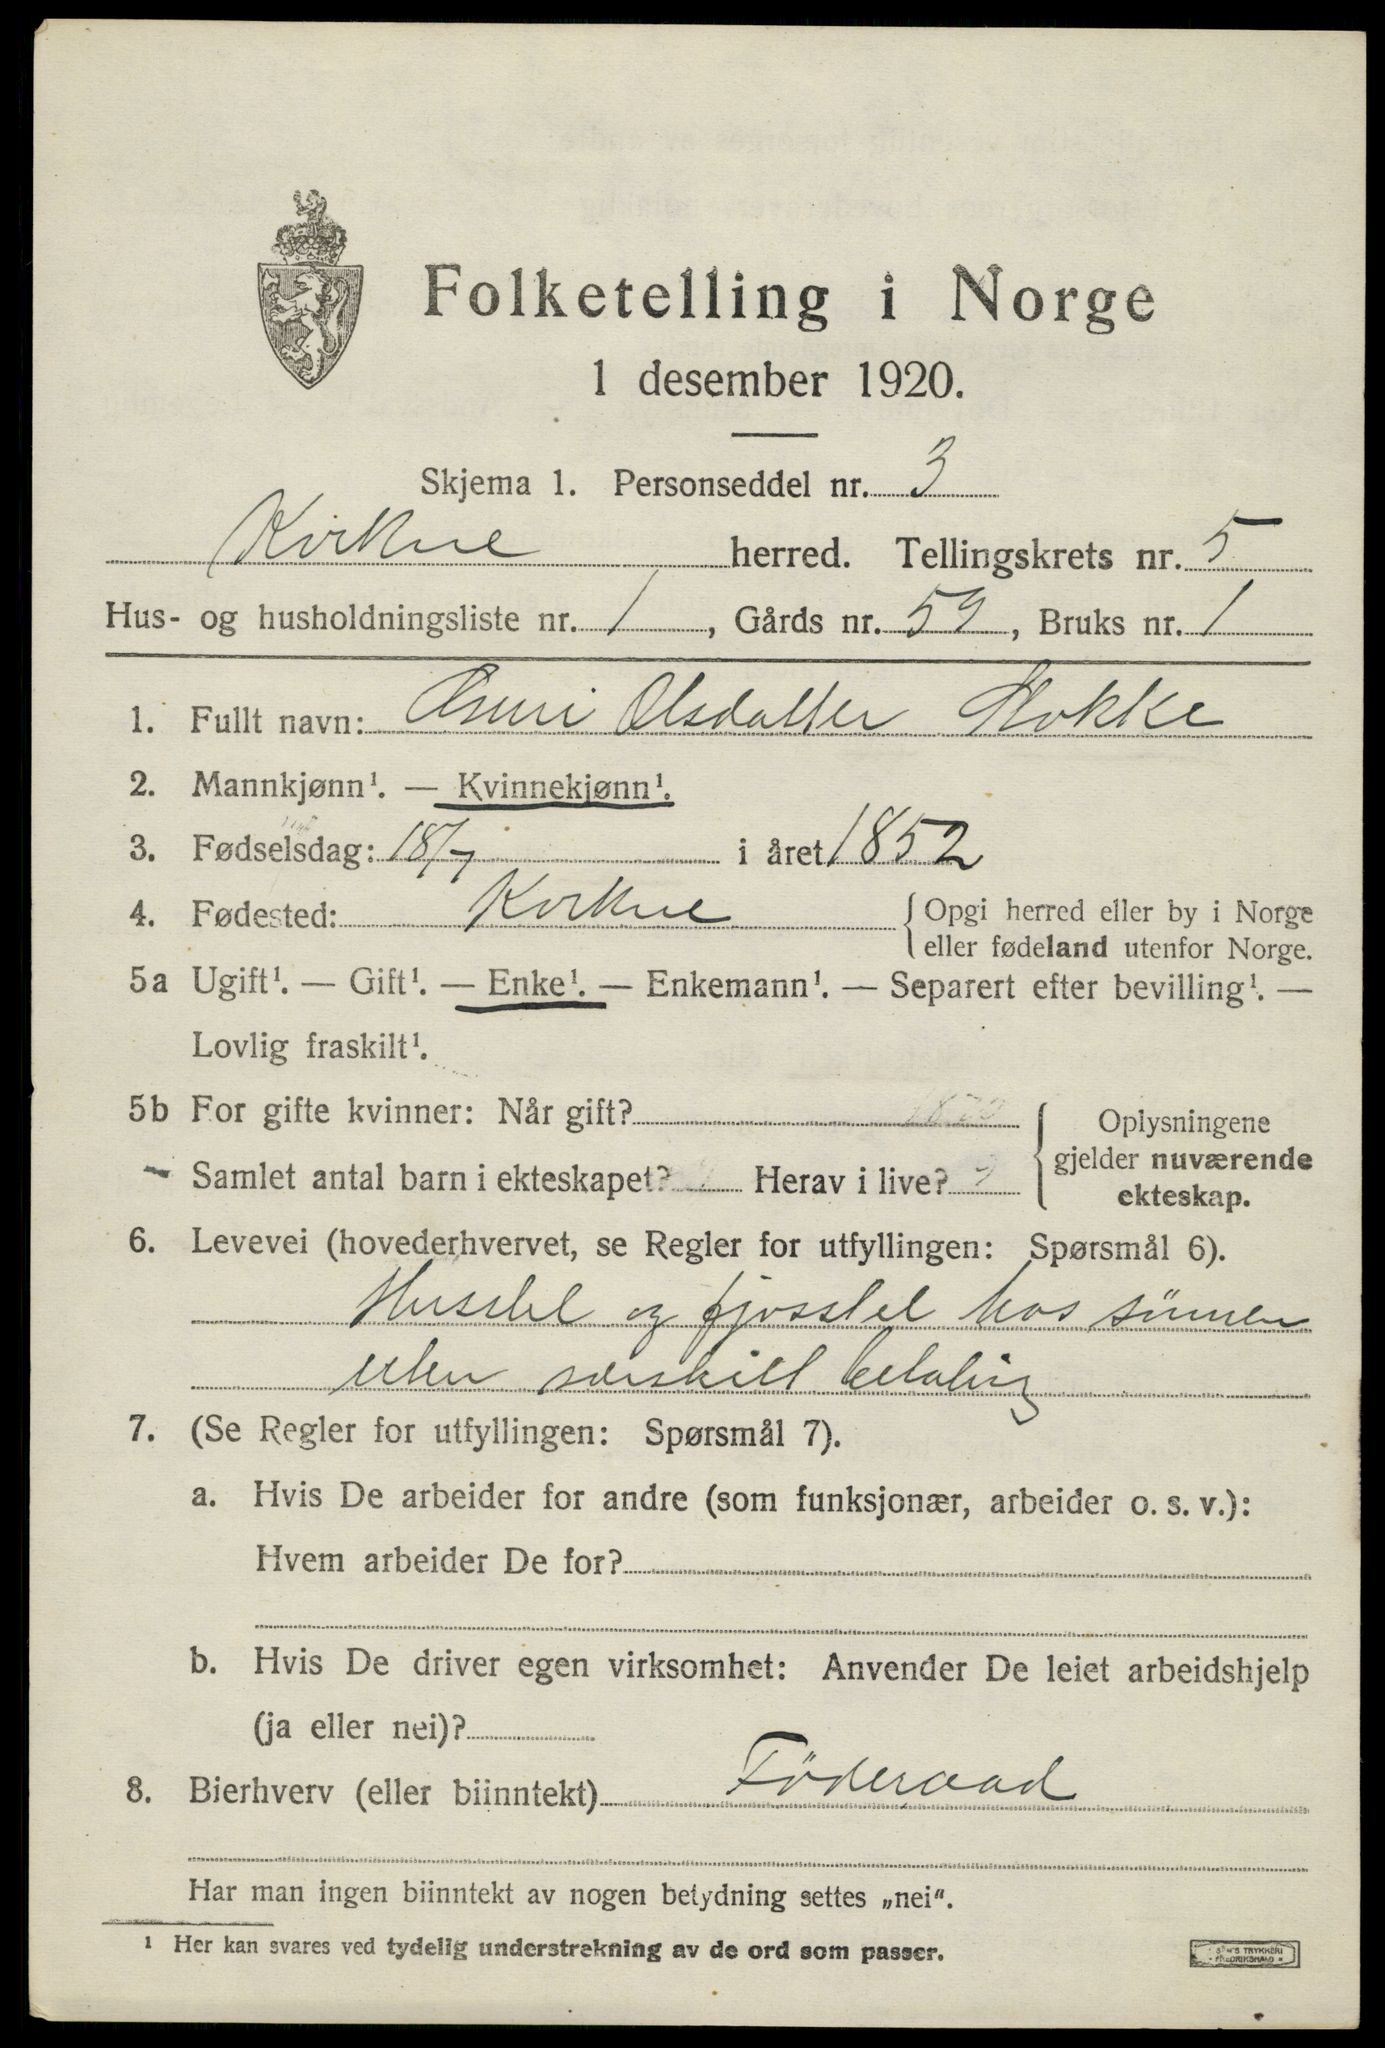 Folketelling i Norge
1 desember 1920.
Skjema 1. Personseddel nr. 3
Kvikne herred. Tellingskrets nr. 5
Hus- og husholdningsliste nr. 1, Gårds nr. 59, Bruks nr. 1
1. Fullt navn: Olsdatter
2. Mannkjønn¹. — Kvinnekjønn¹.
3. Fødselsdag: 18/7 i året 1852
4. Fødested: Kvikne { Opgi herred eller by i Norge
eller fødeland utenfor Norge.
5a Ugift¹. — Gift¹. — Enke¹. — Enkemann¹. — Separert efter bevilling¹. —
Lovlig fraskilt¹.
5b For gifte kvinner: Når gift? { Oplysningene
gjelder nuværende
ekteskap.
Samlet antal barn i ekteskapet? Herav i live?
6. Levevei (hovederhvervet, se Regler for utfyllingen: Spørsmål 6).
Husstel og fjosstel hos sönnen
uten særskilt betaling
7. (Se Regler for utfyllingen: Spørsmål 7).
a. Hvis De arbeider for andre (som funksjonær, arbeider o. s. v.):
Hvem arbeider De for?
b. Hvis De driver egen virksomhet: Anvender De leiet arbeidshjelp
(ja eller nei)?
8. Bierhverv (eller biinntekt) Föderaad
Har man ingen biinntekt av nogen betydning settes „nei“.
¹ Her kan svares ved tydelig understrekning av de ord som passer.